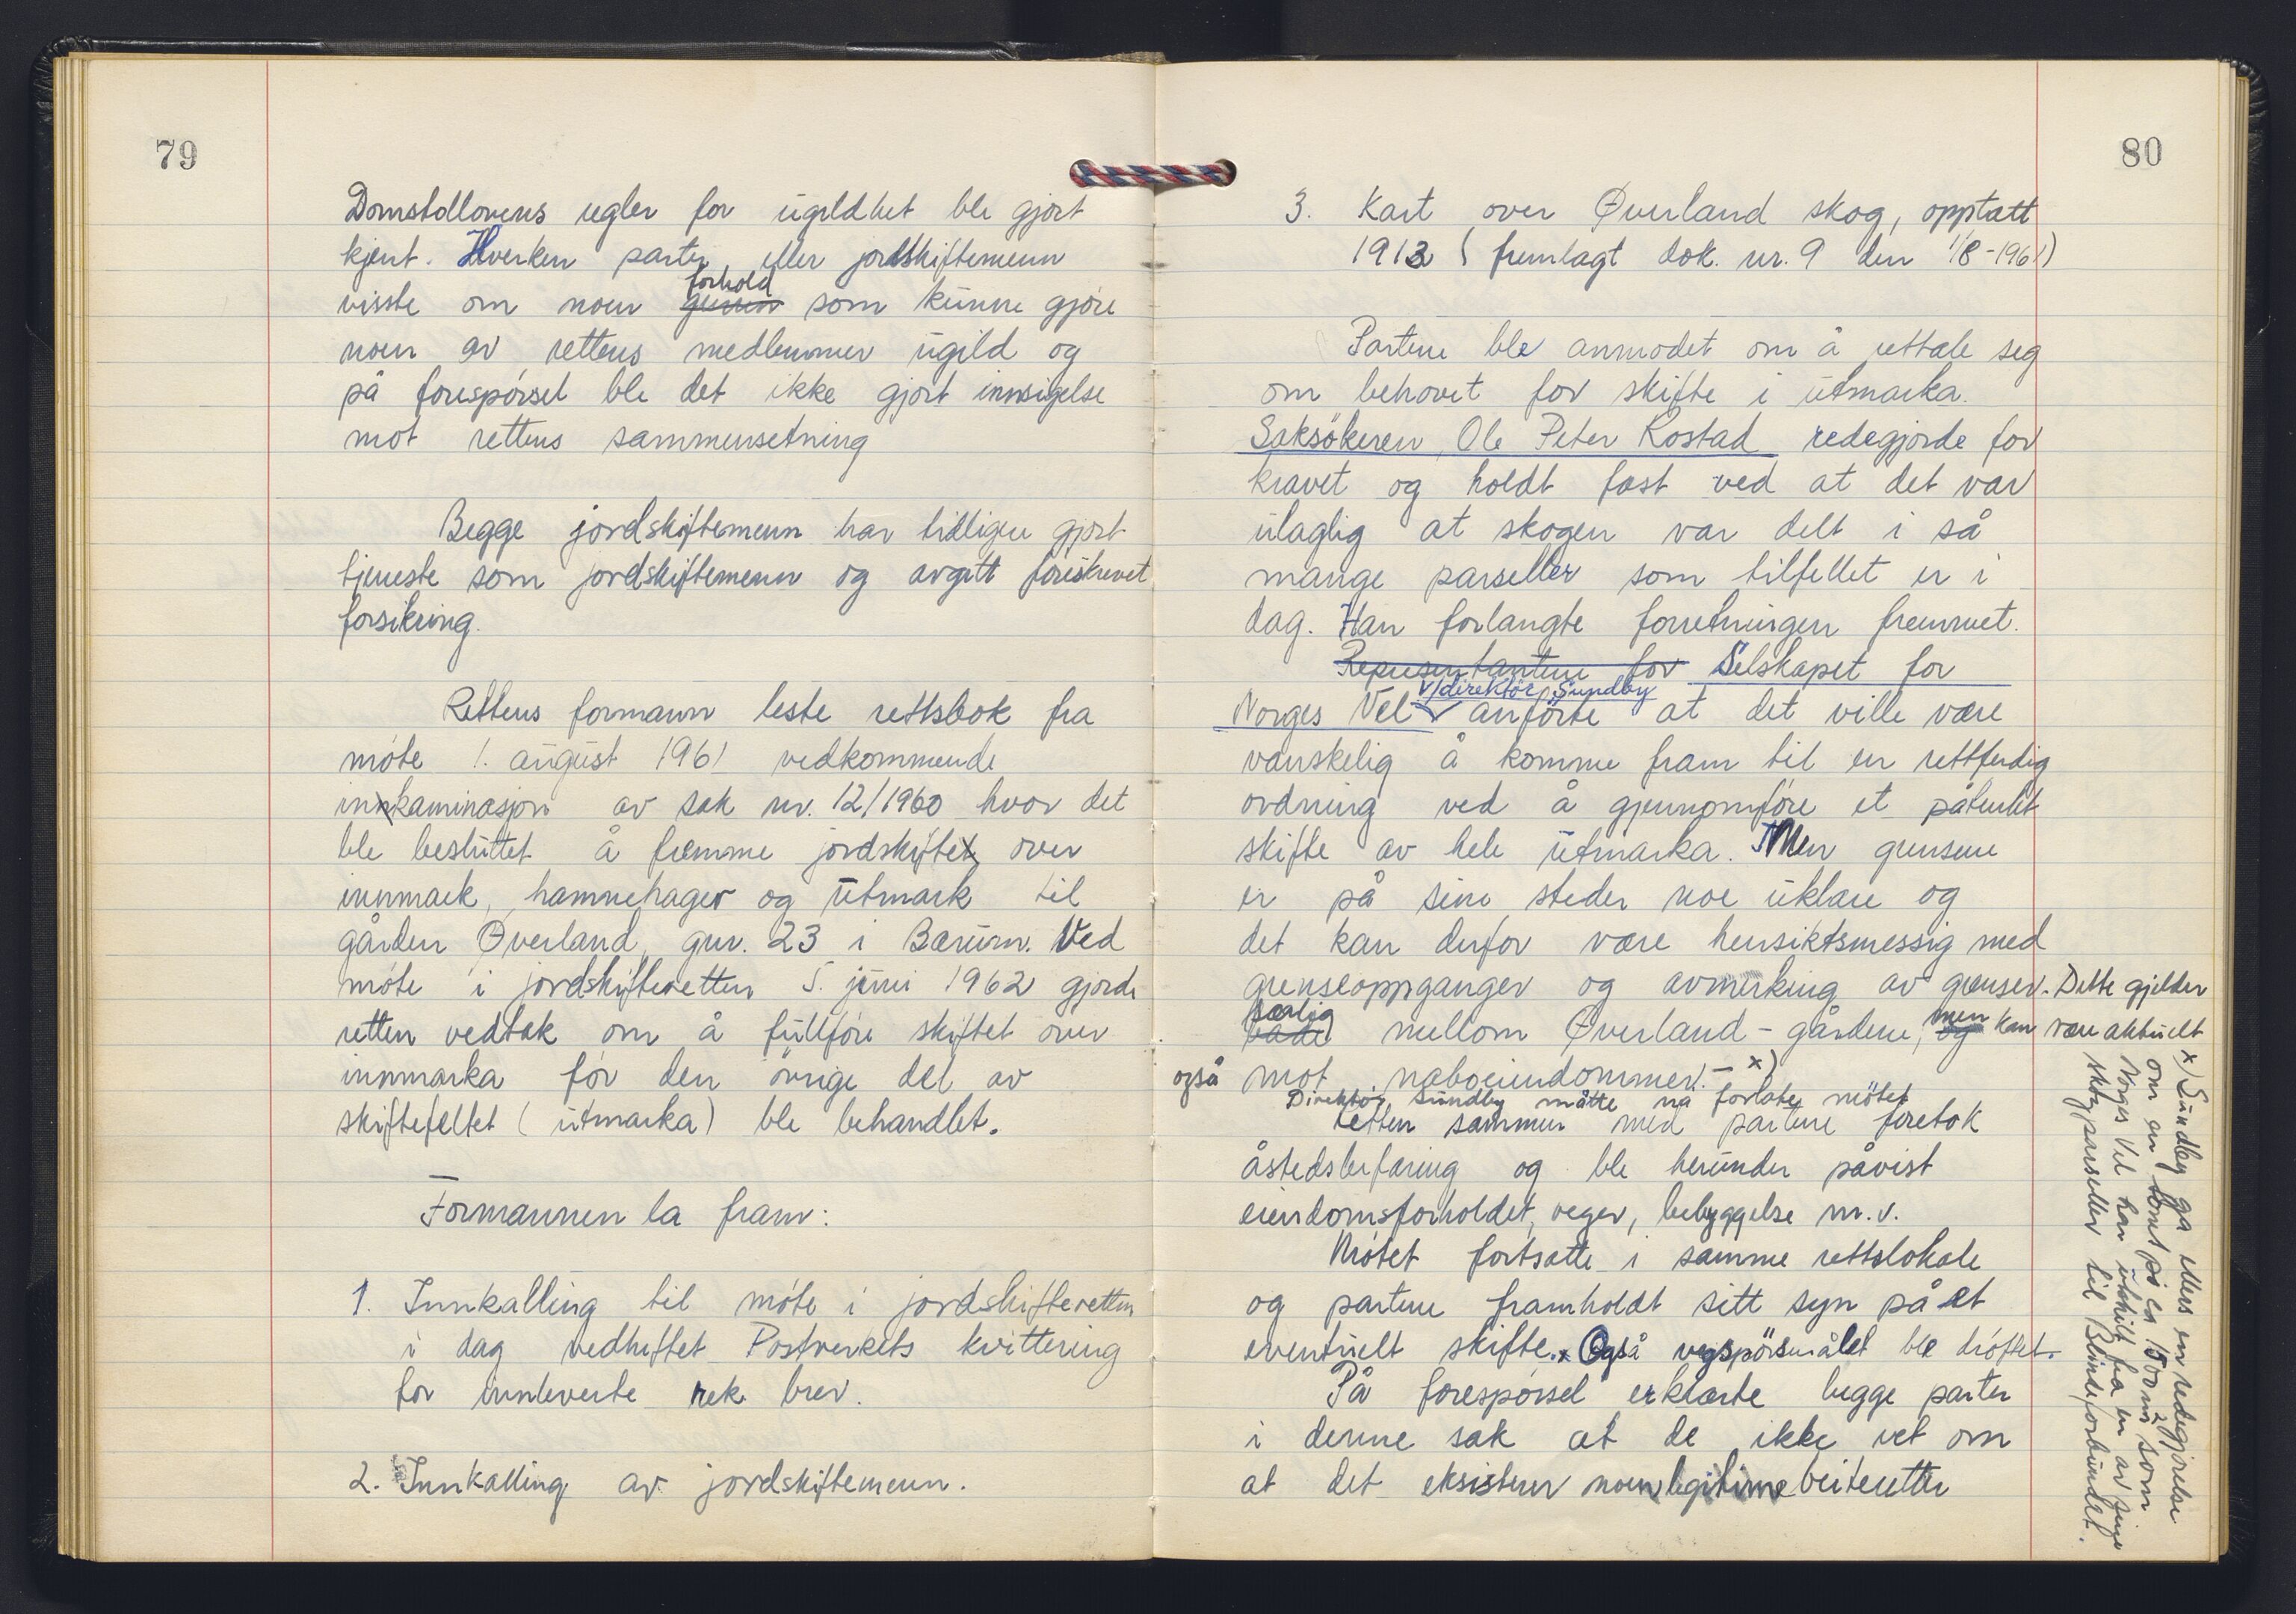 79
Domstollovens regler for ugildhet ble gjort
kjent. Hverken parter eller jordskiftemenn
visste om noen forhold som kunne gjøre
noen av rettens medlemmer ugild og
på forespørsel ble det ikke gjort innsigelse
mot rettens sammensetning
Begge jordskiftemenn har tidligere gjort
tjeneste som jordskiftemenn og avgitt foreskrevet
forsikring.
Rettens formann leste rettsbok fra
møte 1. august 1961 vedkommende
inkaminasjon av sak nr. 12/1960 hvor det
ble besluttet å fremme jordskifte over
innmark, hamnehager og utmark til
gården Øverland, gnr. 23 i Bærum. Ved
møte i jordskifteretten 5. juni 1962 gjorde
retten vedtak om å fullføre skiftet over
innmarka før den øvrige del av
skiftefeltet (utmarka) ble behandlet.
Formannen la fram:
1. Innkalling til møte i jordskifteretten
i dag vedheftet Postverkets kvittering
for innleverte rek. brev.
2. Innkalling av jordskiftemenn.
80
3. Kart over Øverland skog, opptatt
1913 (fremlagt dok. nr. 9 den 1/8-1961)
Partene ble anmodet om å uttale seg
om behovet for skifte i utmarka.
Saksökeren, Ole Peter Rostad redegjorde for
kravet og holdt fast ved at det var
ulaglig at skogen var delt i så
mange parseller som tilfellet er i
dag. Han forlangte forretningen fremmet.
Representantene for Selskapet for
Norges Vel v/direktör Sundby anförte at det ville være
vanskelig å komme fram til en rettferdig
ordning ved å gjennomföre et påtenkt
skifte av hele utmarka. Men grensene
er på sine steder noe uklare og
det kan derfor være hensiktsmessig med
grenseoppganger og avmerking av grenser. Dette gjelder
særlig mellom Øverland-gårdene, men kan være aktuelt
også mot naboeiendommer. - x)
Direktør Sundby måtte nå forlate møtet
Retten sammen med partene foretok
åstedsbefaring og ble herunder påvist
eiendomsforholdet, veger, bebyggelse m.v.
Møtet fortsatte i samme rettslokale
og partene framholdt sitt syn på et
eventuelt skifte. Også vegspörsmålet ble drøftet.
På forespørsel erklærte begge parter
i denne sak at de ikke vet om
at det eksisterer noen legitime beiteretter
x) Sundby ga ellers en redegjørelse
om en tomt på ca 1500 m² som
Norges Vel har utskilt fra en av sine
skogparseller til Blindeforbundet.